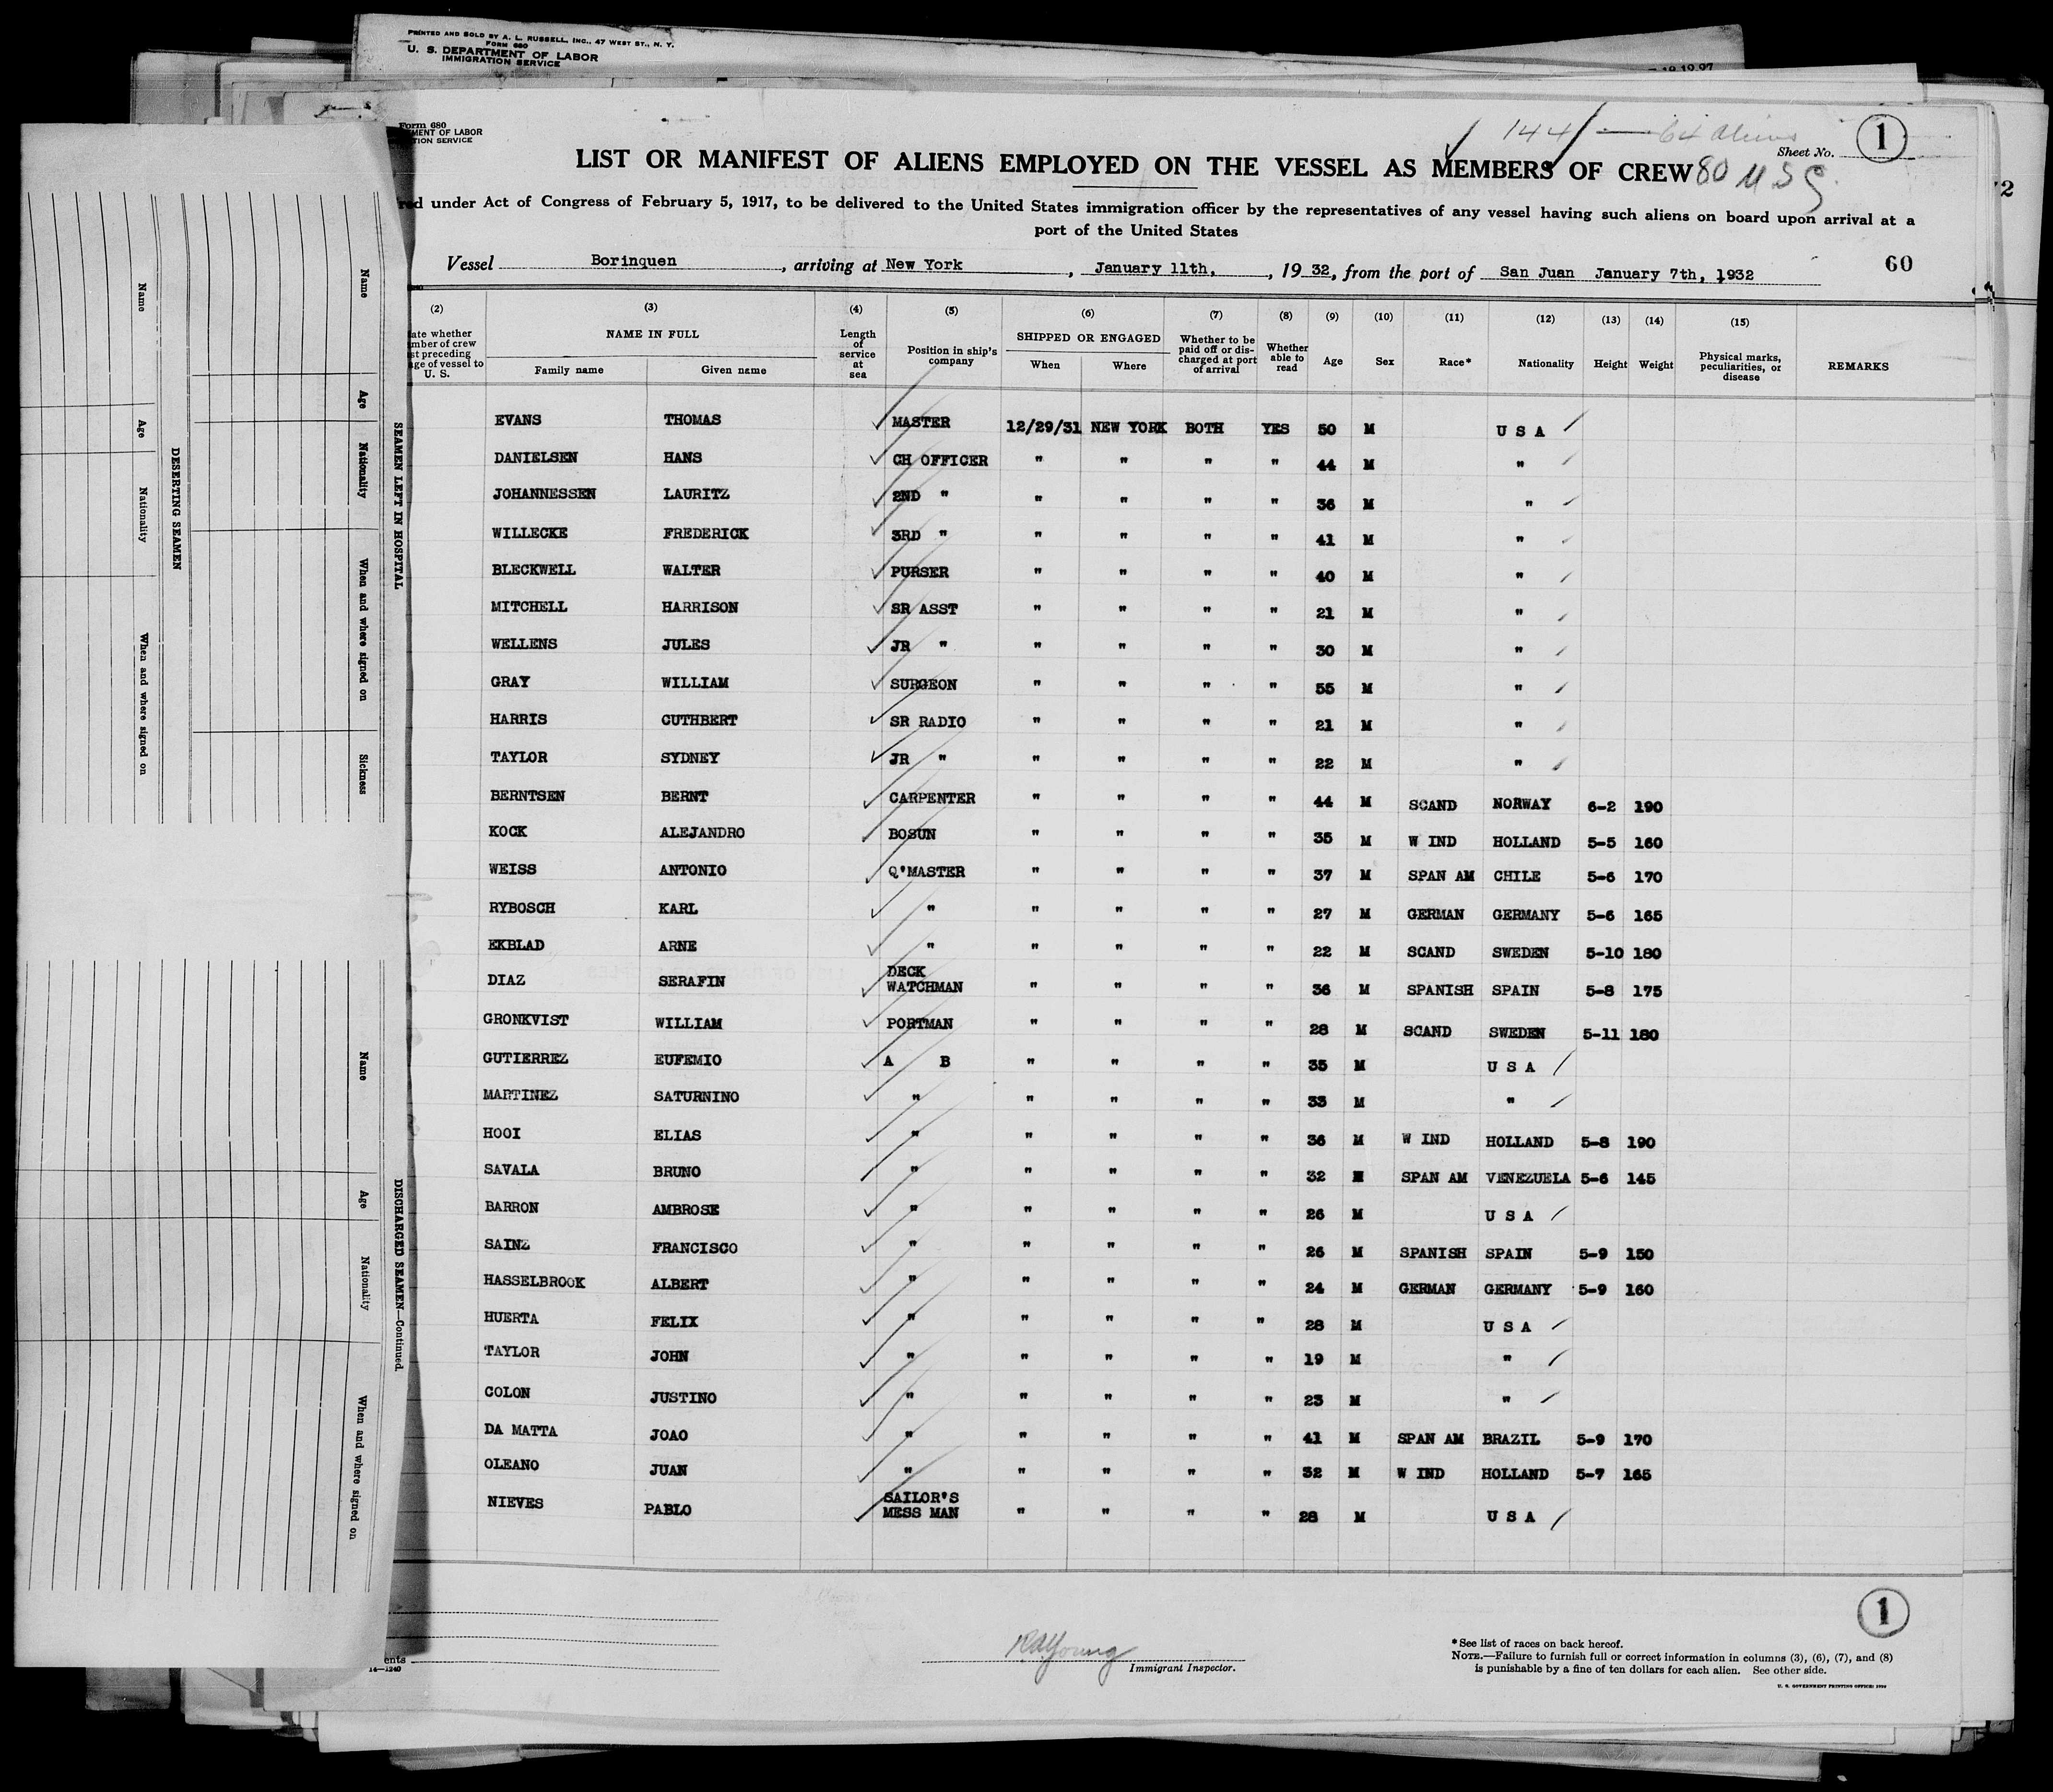 PRINTED AND SOLD BY A. L. RUSSELL, INC., 47 WEST ST., N. Y.
FORM 680
U. S. DEPARTMENT OF LABOR
IMMIGRATION SERVICE
Form 680
MENT OF LABOR
TION SERVICE
144 — 64 aliens
Sheet No. 1
LIST OR MANIFEST OF ALIENS EMPLOYED ON THE VESSEL AS MEMBERS OF CREW 80 U S C
red under Act of Congress of February 5, 1917, to be delivered to the United States immigration officer by the representatives of any vessel having such aliens on board upon arrival at a
port of the United States
Vessel Borinquen, arriving at New York, January 11th, 1932, from the port of San Juan January 7th, 1932
60
(2) (3) (4) (5) (6) (7) (8) (9) (10) (11) (12) (13) (14) (15)
ate whether mber of crew st preceding age of vessel to U. S.
NAME IN FULL
Family name Given name
Length of service at sea
Position in ship's company
SHIPPED OR ENGAGED
When Where
Whether to be paid off or discharged at port of arrival
Whether able to read
Age Sex Race* Nationality Height Weight
Physical marks, peculiarities, or disease
REMARKS
EVANS THOMAS MASTER 12/29/31 NEW YORK BOTH YES 50 M U S A
DANIELSEN HANS CH OFFICER " " " " 44 M "
JOHANNESSEN LAURITZ 2ND " " " " " 36 M "
WILLECKE FREDERICK 3RD " " " " " 41 M "
BLECKWELL WALTER PURSER " " " " 40 M "
MITCHELL HARRISON SR ASST " " " " 21 M "
WELLENS JULES JR " " " " " 30 M "
GRAY WILLIAM SURGEON " " " " 55 M "
HARRIS CUTHBERT SR RADIO " " " " 21 M "
TAYLOR SYDNEY JR " " " " " 22 M "
BERNTSEN BERNT CARPENTER " " " " 44 M SCAND NORWAY 6-2 190
KOCK ALEJANDRO BOSUN " " " " 35 M W IND HOLLAND 5-5 160
WEISS ANTONIO Q'MASTER " " " " 37 M SPAN AM CHILE 5-6 170
RYBOSCH KARL " " " " " 27 M GERMAN GERMANY 5-6 165
EKBLAD ARNE " " " " " 22 M SCAND SWEDEN 5-10 180
DIAZ SERAFIN DECK WATCHMAN " " " " 36 M SPANISH SPAIN 5-8 175
GRONKVIST WILLIAM PORTMAN " " " " 28 M SCAND SWEDEN 5-11 180
GUTIERREZ EUFEMIO A B " " " " 35 M U S A
MARTINEZ SATURNINO " " " " " 33 M "
HOOI ELIAS " " " " " 36 M W IND HOLLAND 5-8 190
SAVALA BRUNO " " " " " 32 M SPAN AM VENEZUELA 5-6 145
BARRON AMBROSE " " " " " 26 M U S A
SAINZ FRANCISCO " " " " " 26 M SPANISH SPAIN 5-9 150
HASSELBROOK ALBERT " " " " " 24 M GERMAN GERMANY 5-9 160
HUERTA FELIX " " " " " 28 M U S A
TAYLOR JOHN " " " " " 19 M "
COLON JUSTINO " " " " " 23 M "
DA MATTA JOAO " " " " " 41 M SPAN AM BRAZIL 5-9 170
OLEANO JUAN " " " " " 32 M W IND HOLLAND 5-7 165
NIEVES PABLO SAILOR'S MESS MAN " " " " 28 M U S A
1
ents
14—1240
R A Young
Immigrant Inspector.
*See list of races on back hereof.
NOTE.—Failure to furnish full or correct information in columns (3), (6), (7), and (8)
is punishable by a fine of ten dollars for each alien. See other side.
U. S. GOVERNMENT PRINTING OFFICE: 19
SEAMEN LEFT IN HOSPITAL
Name Age Nationality When and where signed on Sickness
DESERTING SEAMEN
Name Age Nationality When and where signed on
DISCHARGED SEAMEN—Continued
Name Age Nationality When and where signed on